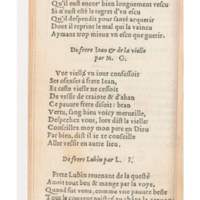 Qu'il eust encor' bien longuement vescu
Si n'eust esté le regret d'vn escu
Qu'il despendit pour santé acquerir
Dont il reprint le mal qui la vaincu
Aymant trop mieux vn escu que guerir.
De frere Iean & de la vielle
par M. G.
Vne vieille vn iour confessoit
Ses offenses à frere Iean,
Et ceste vielle ne cessoit
De vessir de crainte & d'ahan
Ce pauure frere disoit: bran
Vertu, sang bieu voicy merueille,
Despechez vous, lors dist la vielle
Conseillez moy mon pere en Dieu
Par bieu, dist il ie te conseille
Aller vessir en autre lieu.
De frere Lubin par L. I.
Frere Lubin reuenant de la queste
Auoit tout beu & mangé par la voye,
Quand fut venu, comme vne pauure beste